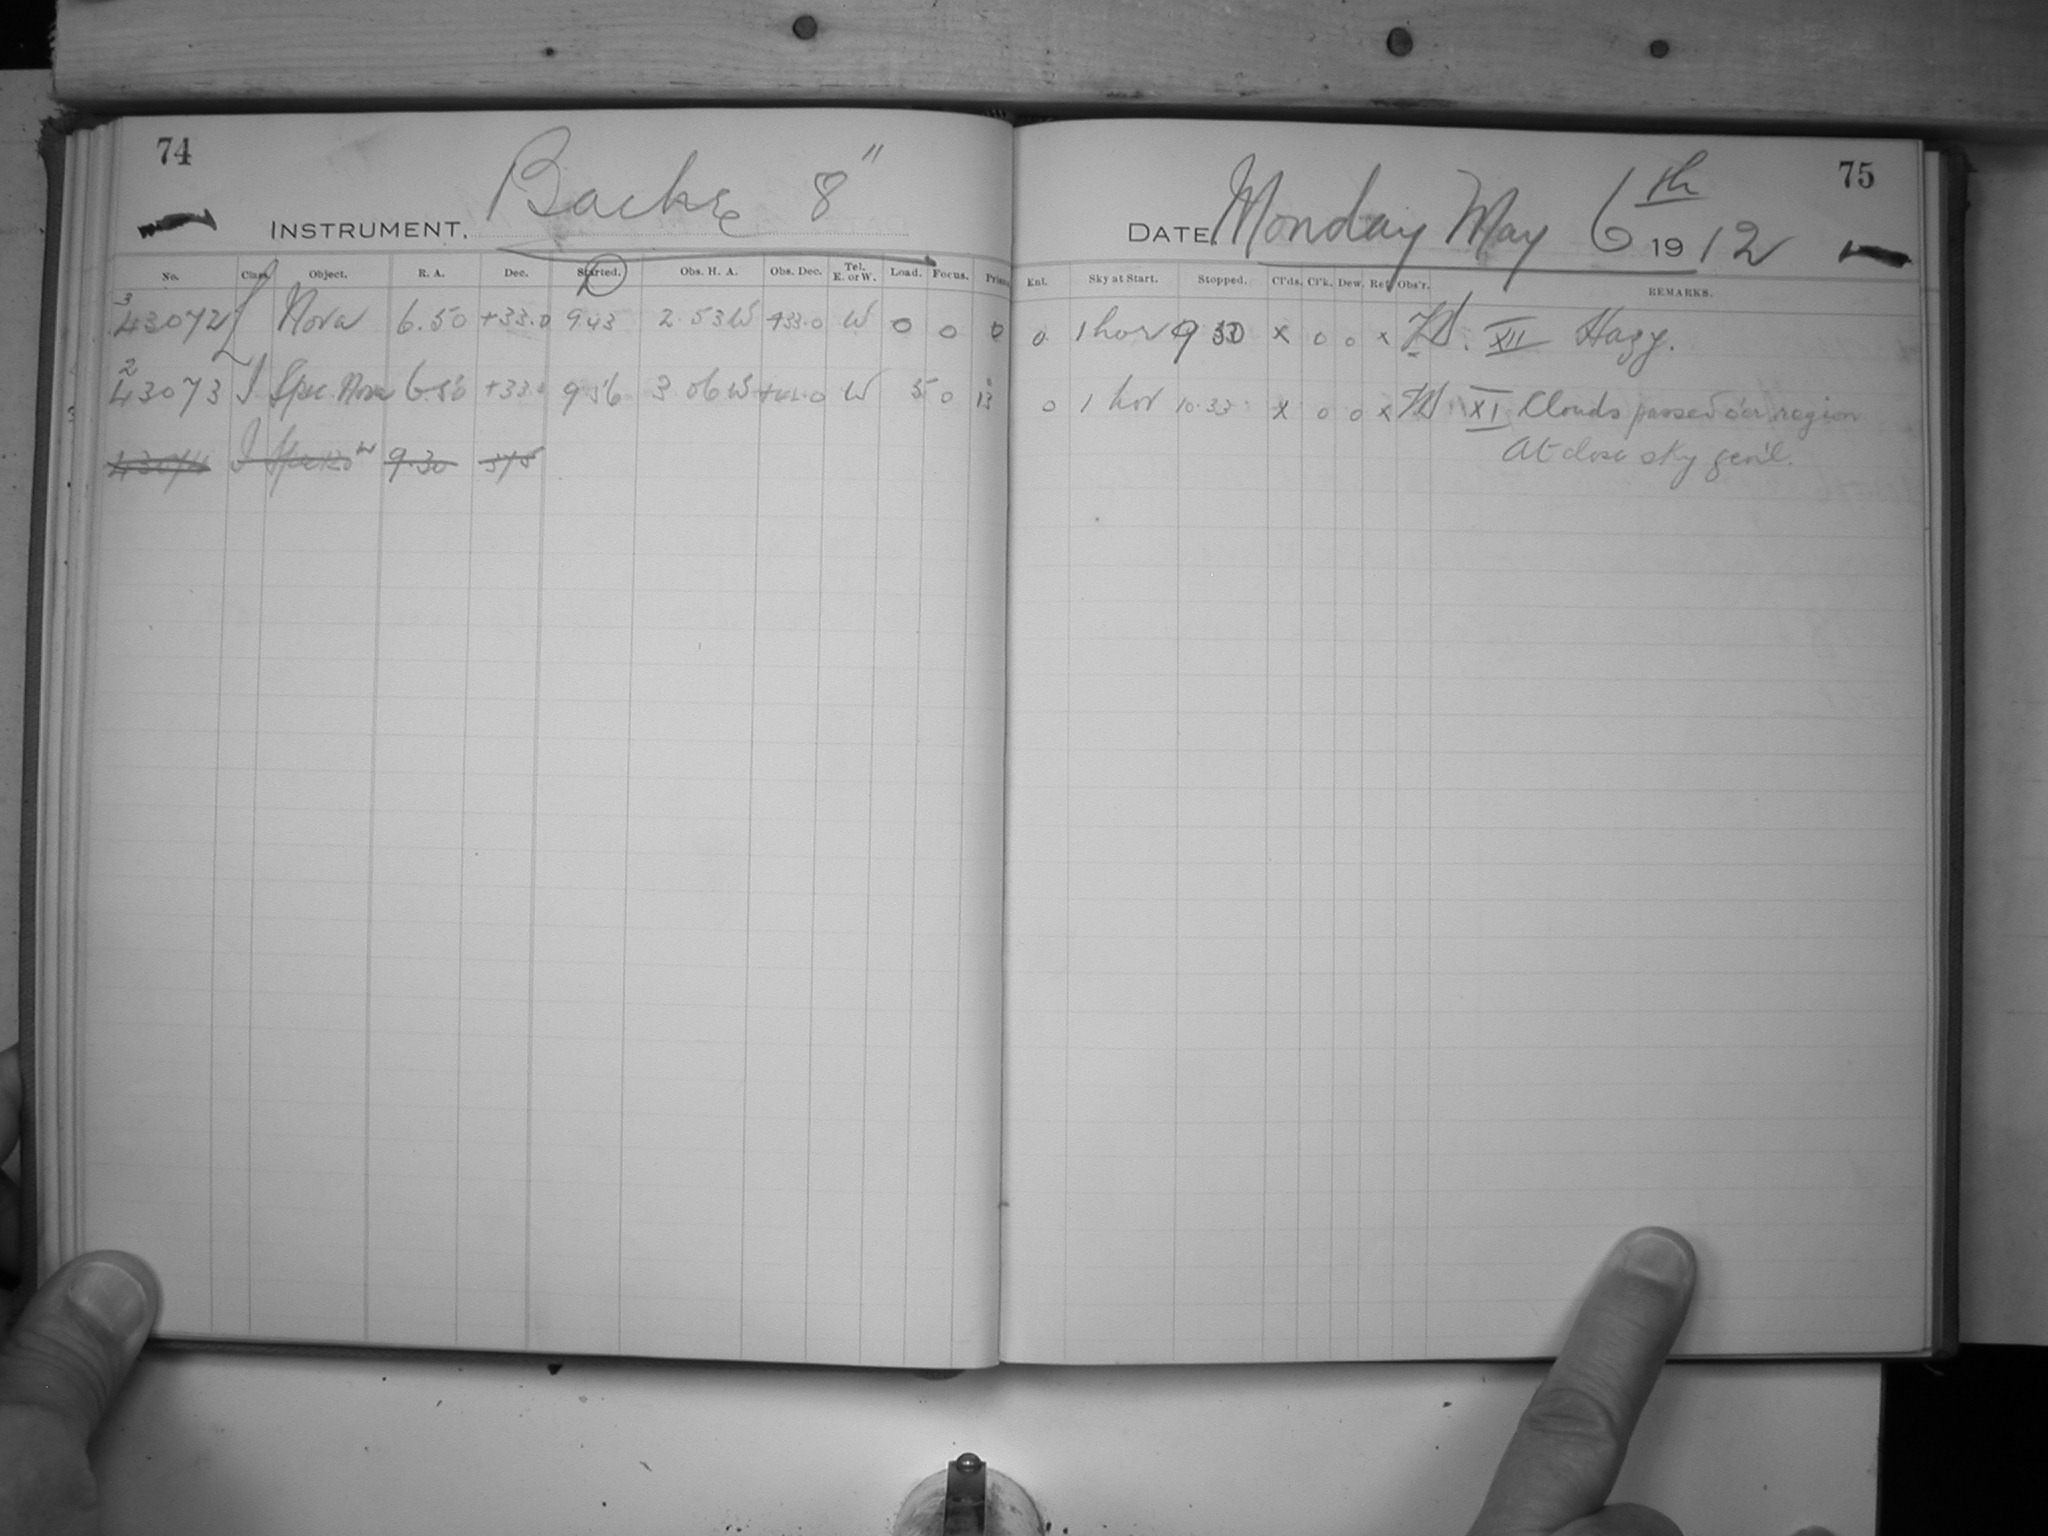 74
Bache 8"
INSTRUMENT.
No. Class. Object. R. A. Dec. Started. Obs. H. A. Obs. Dec. Tel. E. or W. Load. Focus. Prism
3
43072 L Nova 6.50 +33.0 9.43 2.53W +33.0 W 0 0 0
2
43073 I Spec. Nova 6.50 +33.0 9 56 3.06W W 5 0 13
I 9.30
75
DATE Monday May 6th 1912
Ext. Sky at Start. Stopped. Cl'ds. Cl'k. Dew. Ref. Obs'r. REMARKS.
0 1 hor 9 x 0 0 x XII Hazy.
0 1 hor 10.33 x 0 0 x XI Clouds passed o'er region
At close sky gen'l.